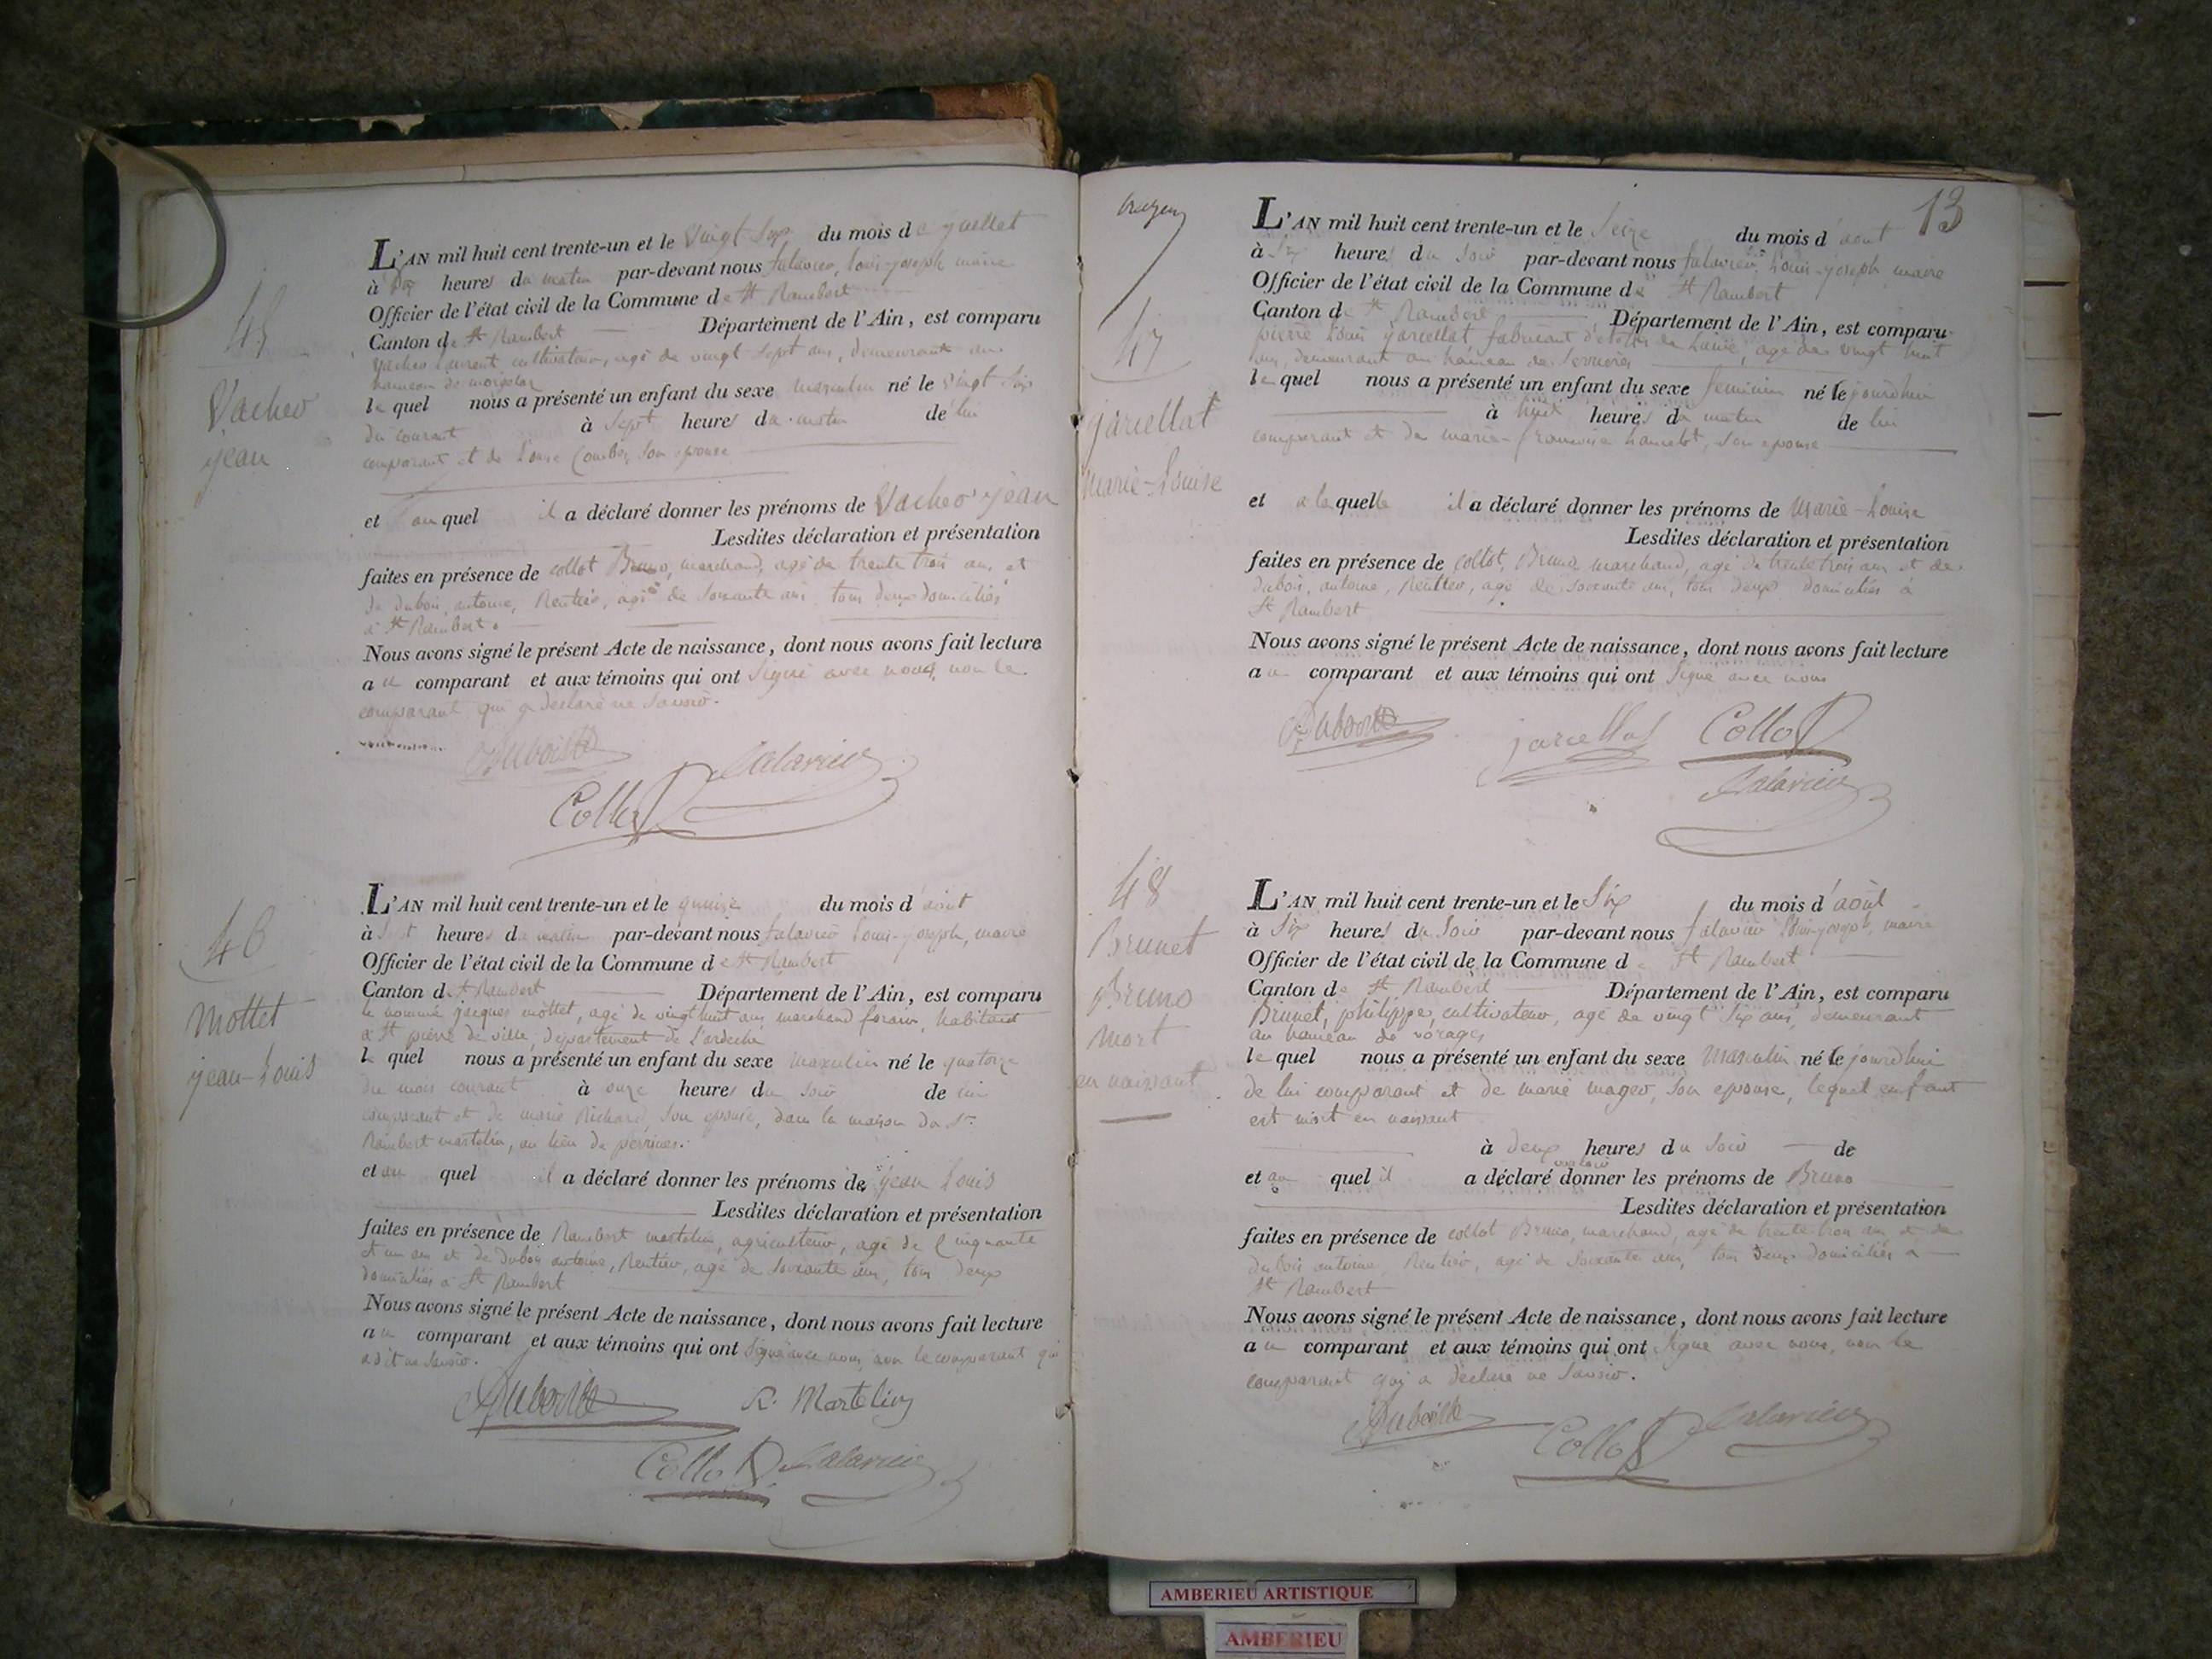 45
Vacher
jean
L'AN mil huit cent trente-un et le vingt Six du mois de juillet
à heures du matin par-devant nous falavier, louis-joseph maire
Officier de l'état civil de la Commune de St Rambert
Canton de St Rambert Département de l'Ain, est comparu
Vacher Laurent, cultivateur, agé de vingt sept ans, demeurant au
hameau de
le quel nous a présenté un enfant du sexe masculin né le vingt Six
du courant à Sept heures du matin de lui
comparant et de Louise Combes, Son epouse
et au quel il a déclaré donner les prénoms de Vacher jean
Lesdites déclaration et présentation
faites en présence de collot Bruno, marchand, agé de trente trois ans et
de dubois, antoine, Rentier, agé de Soixante ans, tous deux domiciliés
à St Rambert.
Nous avons signé le présent Acte de naissance, dont nous avons fait lecture
au comparant et aux témoins qui ont Signé avec nous, non le
comparant qui a declaré ne Savoir.
Dubois
Collot
falavier
46
Mottet
jean-Louis
L'AN mil huit cent trente-un et le quinze du mois d'aout
à Sept heures du matin par-devant nous falavier louis-joseph, maire
Officier de l'état civil de la Commune de St Rambert
Canton de St Rambert Département de l'Ain, est comparu
le nommé jacques mottet, agé de vingt huit ans marchand forain, habitant
a St pierre de ville, département de L'ardeche
le quel nous a présenté un enfant du sexe masculin né le quatorze
du mois courant à onze heures du soir de lui
comparant et de marie Richard, Son epouse, dans la maison du Sr
Rambert martelin, au lieu de perrines.
et au quel il a déclaré donner les prénoms de jean Louis
Lesdites déclaration et présentation
faites en présence de Rambert martelin, agriculteur, agé de Cinquante
et un ans et de Dubois antoine, Rentier, agé de Soixante ans, tous deux
domiciliés à St Rambert
Nous avons signé le présent Acte de naissance, dont nous avons fait lecture
au comparant et aux témoins qui ont Signé avec nous, non le comparant qui
a dit ne Savoir.
Dubois
R. Martelin
Collot
falavier
13
47
jarcellat
marie-Louise
L'AN mil huit cent trente-un et le Seize du mois d'aout
à Six heures du Soir par-devant nous falavier, Louis-joseph maire
Officier de l'état civil de la Commune de St Rambert
Canton de St Rambert Département de l'Ain, est comparu
pierre Louis jarcellat, fabricant d'etoffes de Laine, agé de vingt huit
ans, demeurant au hameau de Serrieres
le quel nous a présenté un enfant du sexe feminin né le jourdhui
à huit heures du matin de lui
comparant et de marie-francoise Lancelot, Son epouse
et a la quelle il a déclaré donner les prénoms de Marie-Louise
Lesdites déclaration et présentation
faites en présence de collot, Bruno marchand, agé de trente trois ans et de
dubois, antoine, Rentier, agé de Soixante ans, tous deux domiciliés à
St Rambert
Nous avons signé le présent Acte de naissance, dont nous avons fait lecture
au comparant et aux témoins qui ont Signé avec nous
Dubois
jarcellat
Collot
falavier
48
Brunet
Bruno
mort
en naissant
L'AN mil huit cent trente-un et le Six du mois d'août
à Six heures du Soir par-devant nous falavier Louis-joseph, maire
Officier de l'état civil de la Commune de St Rambert
Canton de St Rambert Département de l'Ain, est comparu
Brunet, philippe, cultivateur, agé de vingt Six ans, demeurant
au hameau de vorages
le quel nous a présenté un enfant du sexe Masculin né le jourdhui
de lui comparant et de marie mager, Son epouse, lequel enfant
est mort en naissant
à deux heures du Soir de
et au quel il a déclaré vouloir donner les prénoms de Bruno
Lesdites déclaration et présentation
faites en présence de collot Bruno, marchand, agé de trente trois ans et de
dubois antoine, Rentier, agé de Soixante ans, tous deux domiciliés a
St Rambert
Nous avons signé le présent Acte de naissance, dont nous avons fait lecture
au comparant et aux témoins qui ont Signé avec nous, non le
comparant qui a declaré ne Savoir.
Dubois
Collot
falavier
AMBERIEU ARTISTIQUE
AMBERIEU